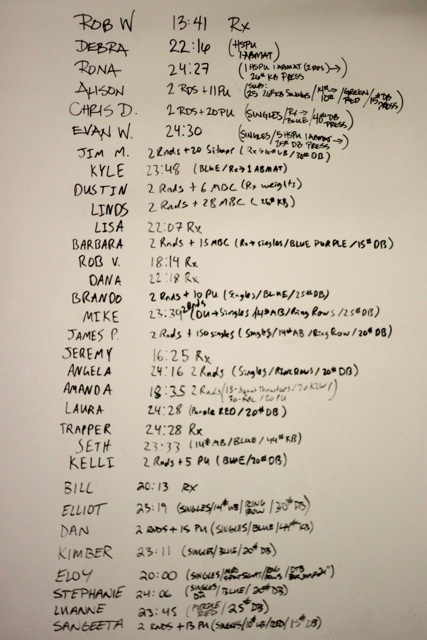 ROB W 13:41 Rx
DEBRA 22:16 (HSPU 1ABMAT)
RONA 24:27 (1 HSPU 1 ABMAT → 26# KB PRESS
ALISON 2 RDS + 11PU
CHRIS D. 2 RDS + 20 PU (SINGLES/Rx → BLUE/40# DB PRESS)
EVAN W. 24:30 (SINGLES/5 HSPU 1 ABMAT → 25# DB PRESS
JIM M. 2 Rnds + 20 Situps
KYLE 23:48 (BLUE/Rx→1 ABMAT)
DUSTIN 2 Rnds + 6 MBC (Rx weights)
LINDS 2 Rnds + 28 MBC (26# KB)
LISA 22:07 Rx
BARBARA 2 Rnds + 15 MBC (Rx→singles/BLUE PURPLE/15# DB)
ROB V. 18:14 Rx
DANA 22:18 Rx
BRANDO 2 Rnds + 10 PU (Singles/BLUE/25# DB)
MIKE 23:39 2 Rnds (DU→Singles/14# AB/Ring Rows/25# DB)
JAMES P. 2 Rnds + 150 singles (Singles/14# AB/Ring Row/20# DB)
JEREMY 16:25 Rx
ANGELA 24:16 2 Rnds (Singles/RING ROWS/20# DB)
AMANDA 18:35 2 Rnds
LAURA 24:28 (Purple RED/20# DB)
TRAPPER 24:28 Rx
SETH 23:33 (14# MB/BLUE/44# KB)
KELLI 2 Rnds + 5 PU (BLUE/20# DB)
BILL 20:13 RX
ELLIOT 23:19 (SINGLES/14# WB/RING ROW/30# DB)
DAN 2 RDS + 15 PU (SINGLES/BLUE/44# KB)
KIMBER 23:11 (SINGLES/BLUE/20# DB)
ELOY 20:00
STEPHANIE 24:06
LUANNE 23:45 (PURPLE RED/25# DB)
SANGEETA 2 RDS + 13 PU